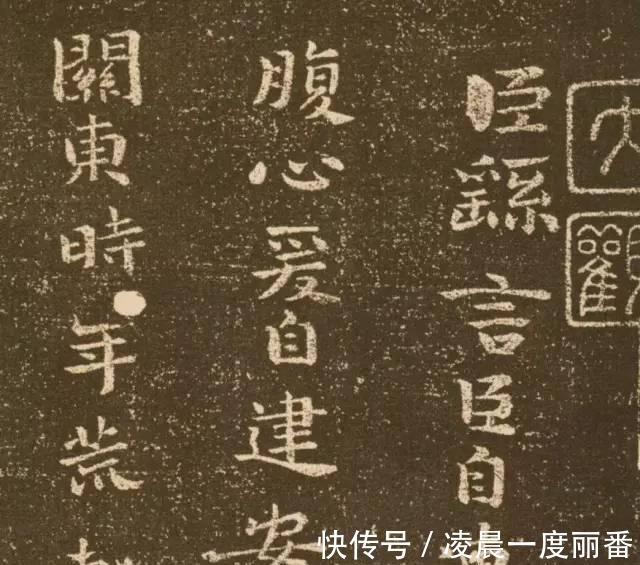 臣繇言臣自
腹心爰自建安
關東時年荒
大觀
快传号／凌晨一度丽番